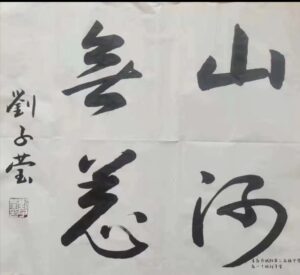 山河
無恙
劉子瑩